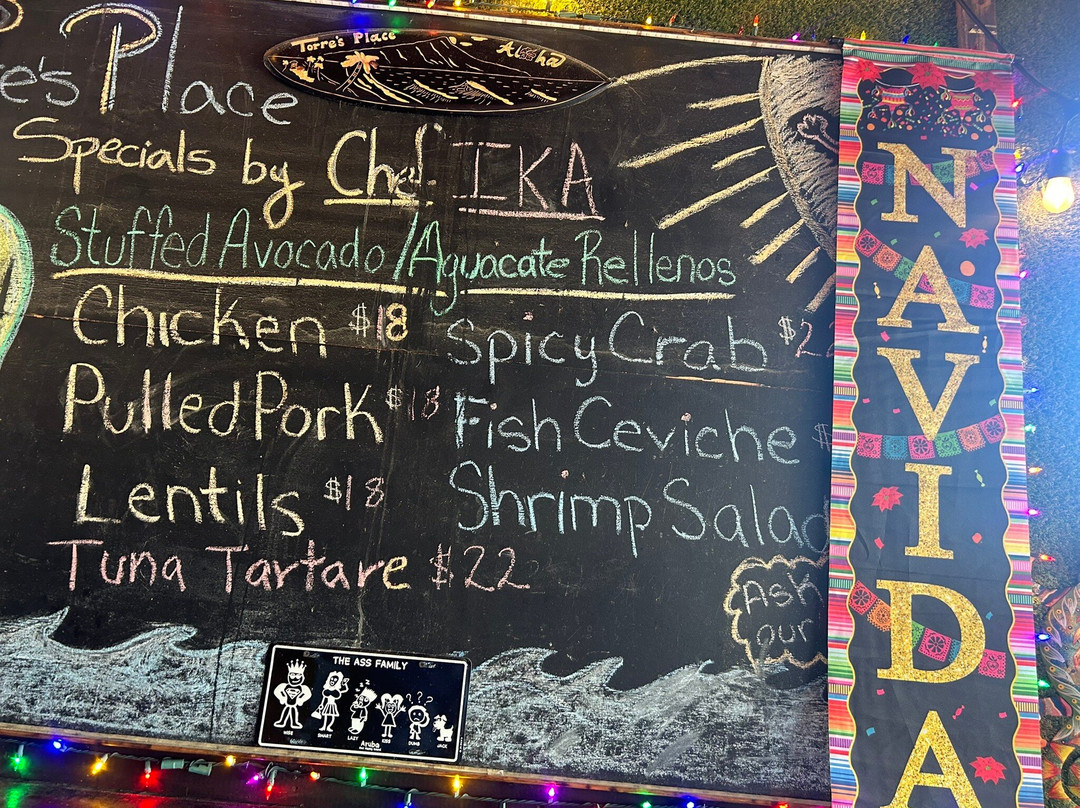 re's Place
Torre's Place Aloha
Specials by Chef IKA
Stuffed Avocado / Aguacate Rellenos
Chicken $18
Pulled Pork $18
Lentils $18
Tuna Tartare $22
Spicy Crab $2
Fish Ceviche $
Shrimp Salad
Ask
our
THE ASS FAMILY
WISE SMART LAZY KISS DUMB JACK
Aruba
NAVIDA